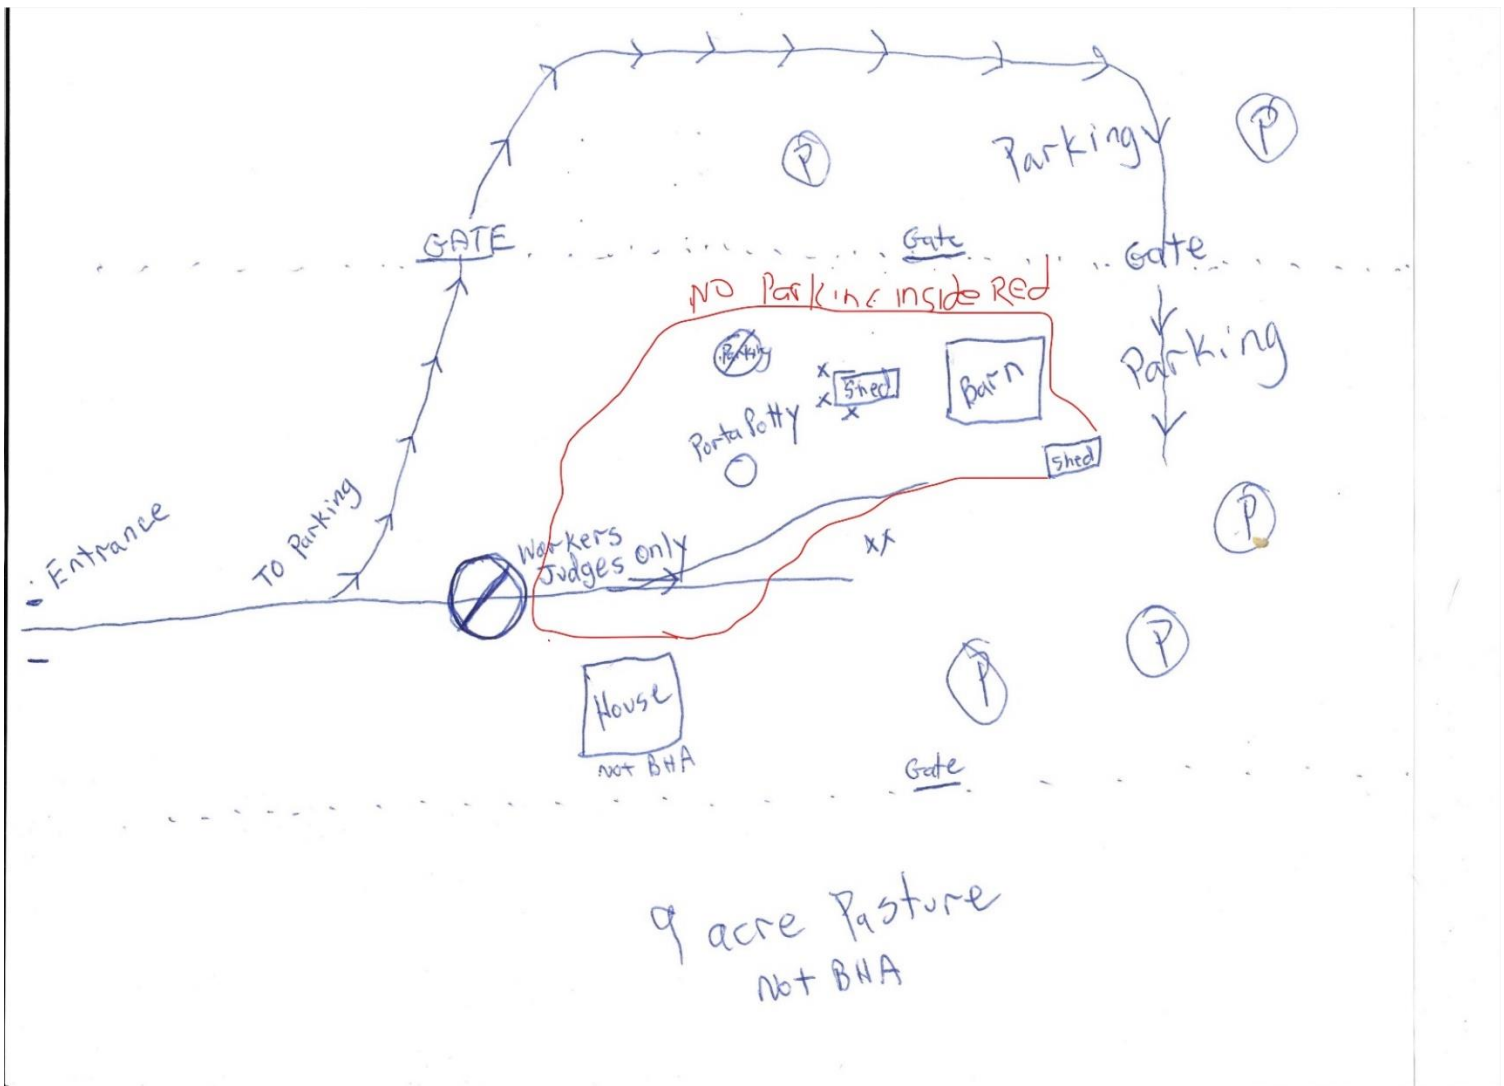 Parking
P
P
GATE
Gate
Gate
NO Parking inside RED
Parking
Parking
Shed
Barn
Porta Potty
Shed
Entrance
To Parking
Workers
Judges only
xx
P
P
P
House
Not BHA
Gate
9 acre Pasture
Not BHA